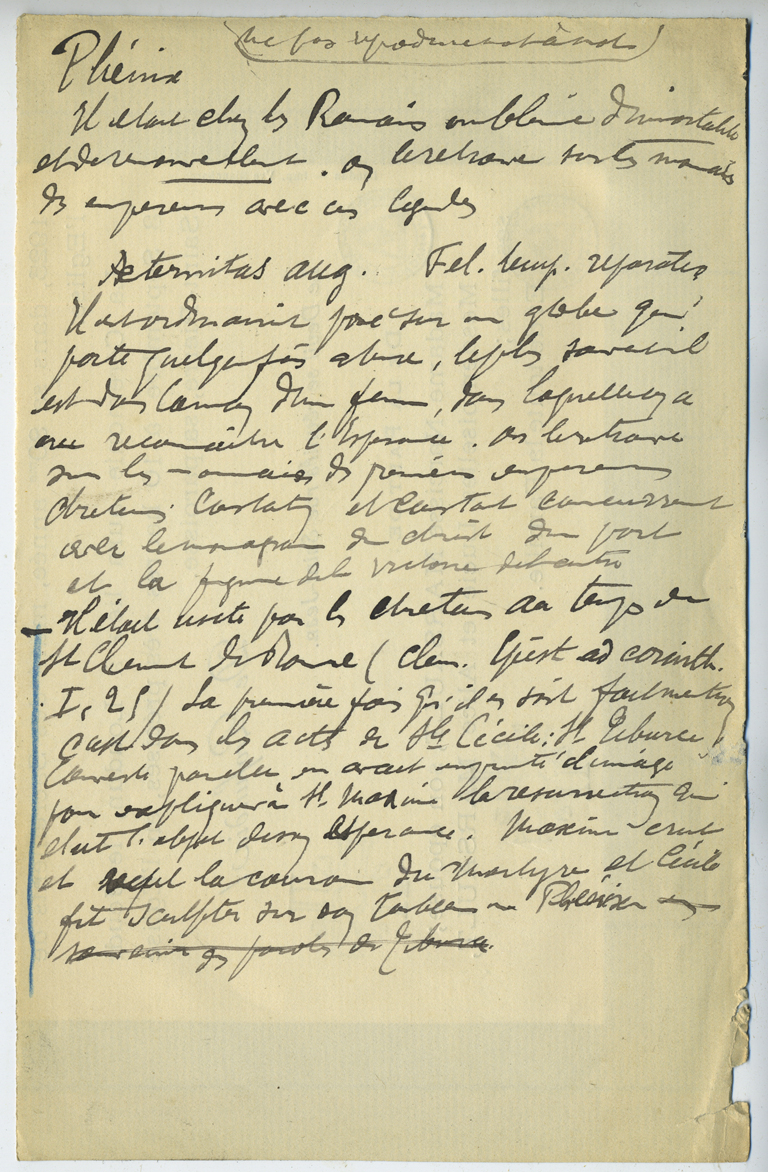 (ne pas reproduire
Phénix
Il était chez les Romains emblème d'immortalité
et de renouvellement. on le retrouve sur les monnaies
des empereurs avec ces légendes
Aeternitas aug. Fel. temp. reparatio
Il est ordinairement posé sur un globe qui
porte quelquefois, le plus souvent il
est dans la main d'une femme, dans laquelle on a
cru reconnaître l'Espérance. on le retrouve
sur les monnaies des premiers empereurs
chretiens Constantin et Constant concurremment
avec le monogramme du christ d'une part
et la figure de la Victoire de l'autre
— Il était usité par les chretiens au temps de
St Clement de Rome (Clem. Epist. ad corinth.
I, 25) La première fois qu'il en soit fait mention
c'est dans les actes de Ste Cécile: St Tiburce,
converti par elle en avait emprunté l'image
pour expliquer à St Maxime la resurrection qui
etait l'objet de son espérance. Maxime crut
et reçut la couronne du Martyre et Cécile
fit sculpter sur son tombeau un Phénix en
souvenir des paroles de Tiburce